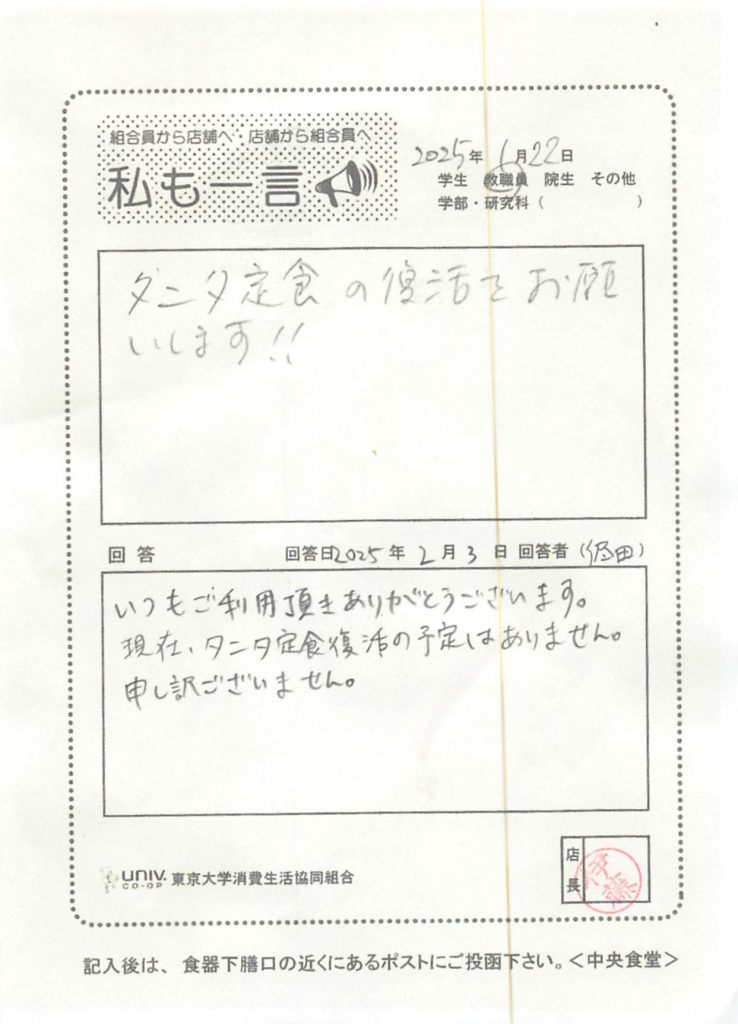 組合員から店舗へ・店舗から組合員へ
私も一言
2025年 1月22日
学生 教職員 院生 その他
学部・研究科（ ）
タニタ定食の復活をお願
いします!!
回答 回答日2025年 2月 3日 回答者（ 田）
いつもご利用頂きありがとうございます。
現在、タニタ定食復活の予定はありません。
申し訳ございません。
店長
伊藤
UNIV. CO-OP 東京大学消費生活協同組合
記入後は、食器下膳口の近くにあるポストにご投函下さい。＜中央食堂＞